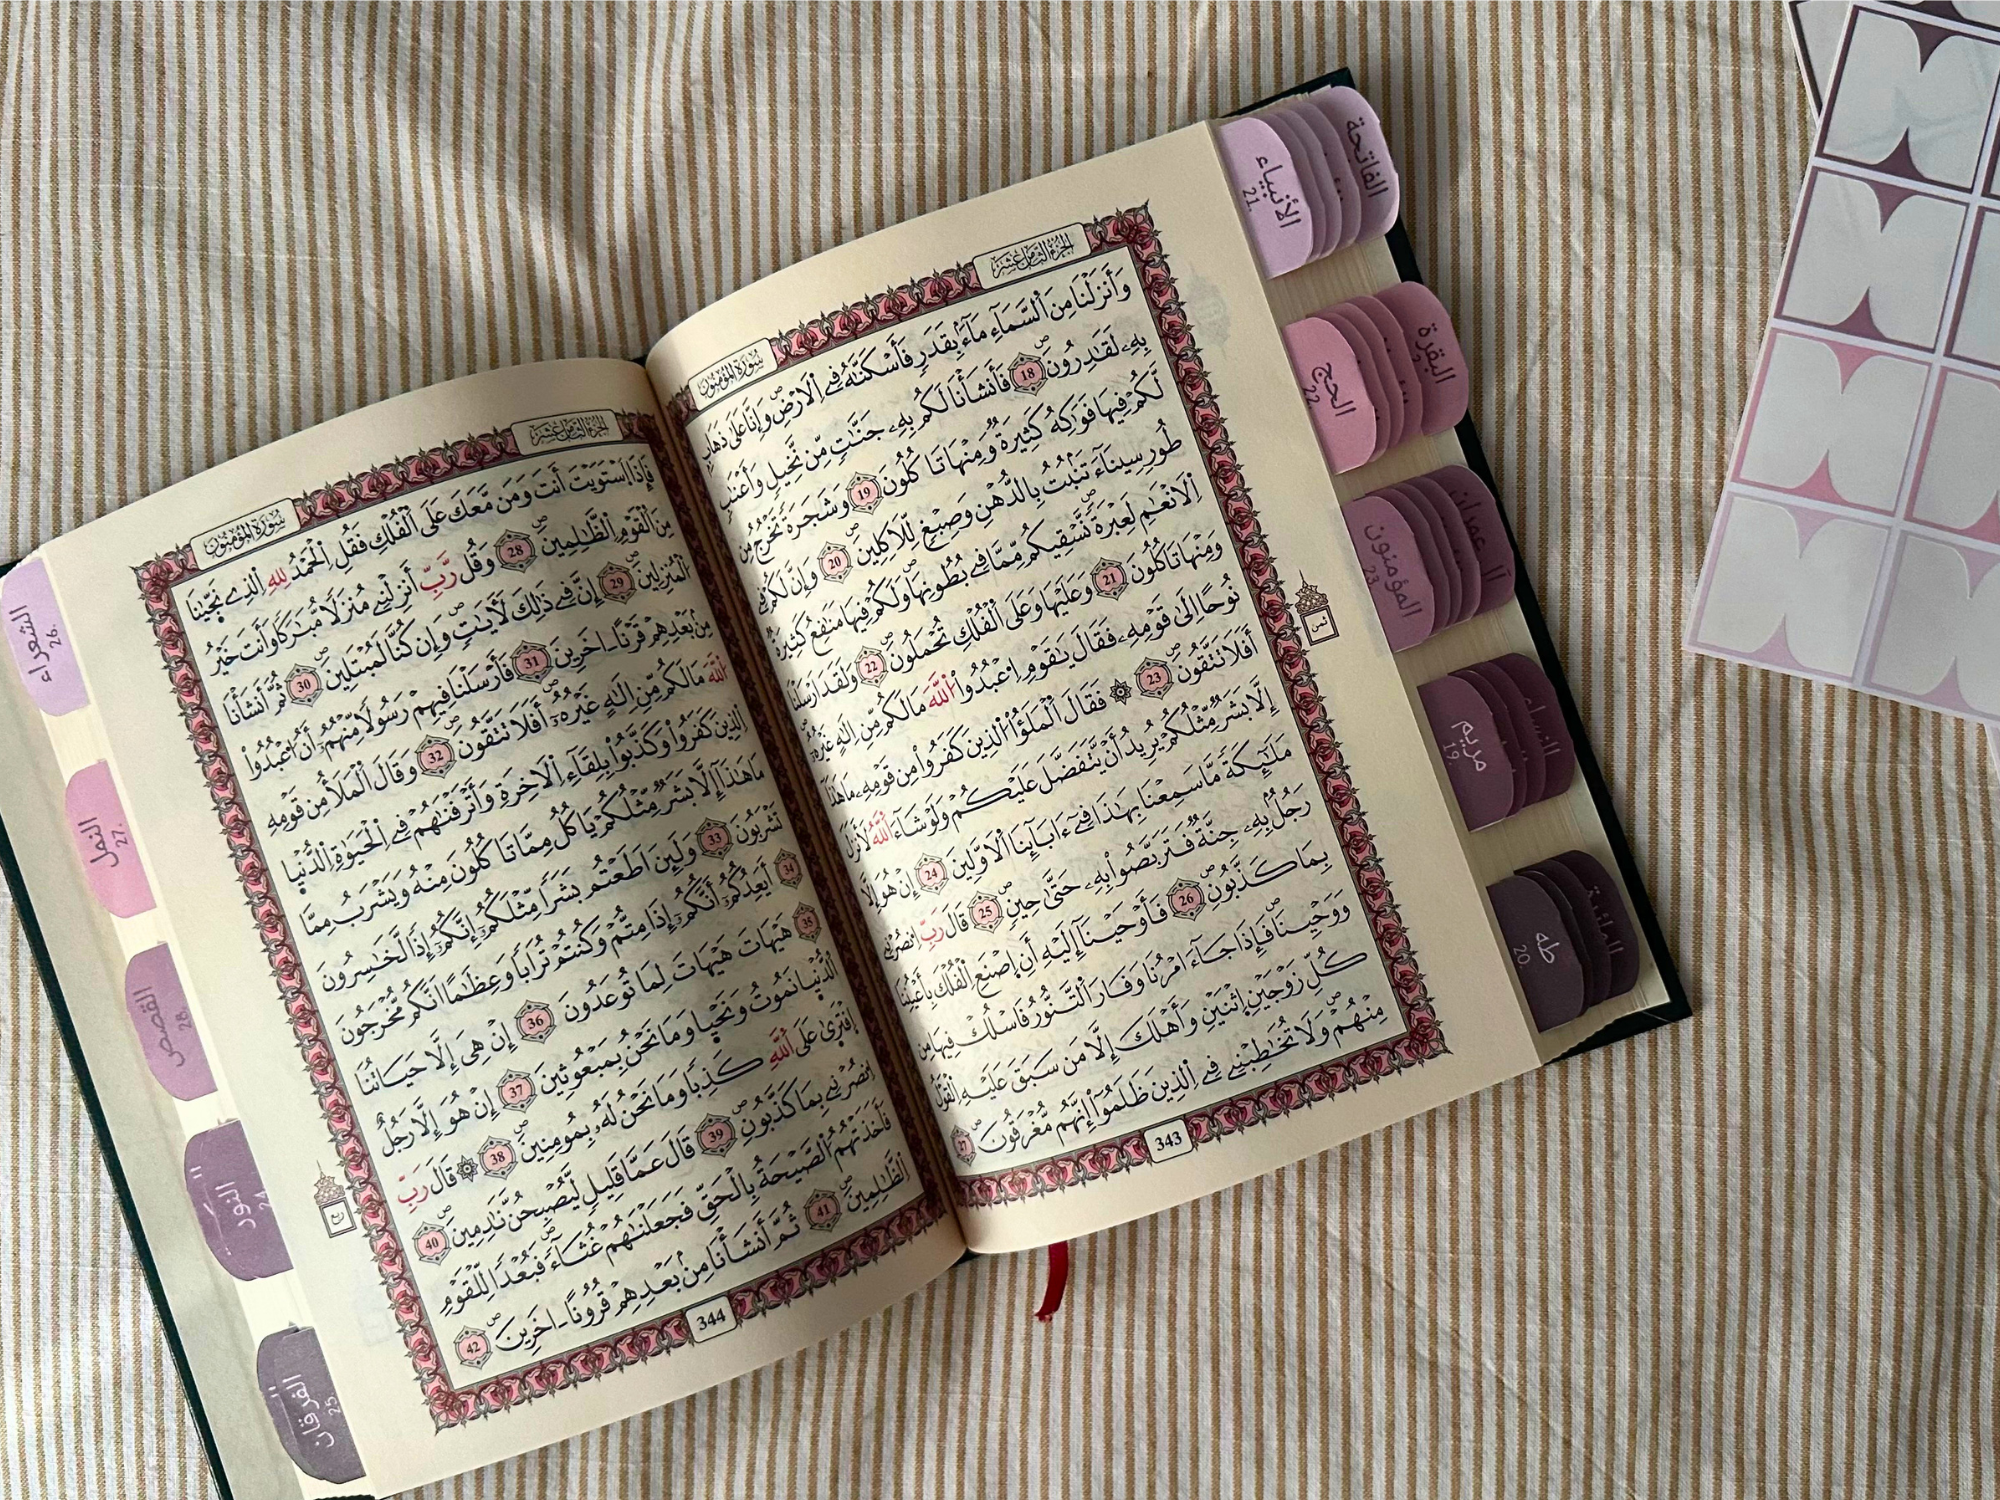 الجزء الثامن عشر
سورة المومنون
وَأَنزَلْنَا مِنَ اَ۬لسَّمَآءِ مَآءَۢ بِقَدَرٖ فَأَسْكَنَّٰهُ فِے اِ۬لَارْضِۖ وَإِنَّا عَلَىٰ ذَهَابِۢ
بِهِۦ لَقَٰدِرُونَۖ 18 فَأَنشَأْنَا لَكُم بِهِۦ جَنَّٰتٖ مِّن نَّخِيلٖ وَأَعْنَٰبٖ
لَّكُمْ فِيهَا فَوَٰكِهُ كَثِيرَةٞ وَمِنْهَا تَاكُلُونَ 19 وَشَجَرَةٗ تَخْرُجُ مِن
طُورِ سِينَآءَ تَنۢبُتُ بِالدُّهْنِ وَصِبْغٖ لِّلَاكِلِينَۖ 20 وَإِنَّ لَكُمْ فِے
اِ۬لَانْعَٰمِ لَعِبْرَةٗۖ نَّسْقِيكُم مِّمَّا فِے بُطُونِهَاۖ وَلَكُمْ فِيهَا مَنَٰفِعُ كَثِيرَةٞ
وَمِنْهَا تَاكُلُونَ 21 وَعَلَيْهَا وَعَلَى اَ۬لْفُلْكِ تُحْمَلُونَۖ 22 وَلَقَدَ اَرْسَلْنَا
نُوحاً اِلَىٰ قَوْمِهِۦ فَقَالَ يَٰقَوْمِ اِ۟عْبُدُواْ اُ۬للَّهَ مَا لَكُم مِّنِ اِلَٰهٍ غَيْرُهُۥٓ
أَفَلَا تَتَّقُونَۖ 23 ۞ فَقَالَ اَ۬لْمَلَؤُاْ اُ۬لذِينَ كَفَرُواْ مِن قَوْمِهِۦ مَا هَٰذَآ
إِلَّا بَشَرٞ مِّثْلُكُمْ يُرِيدُ أَنْ يَّتَفَضَّلَ عَلَيْكُمْ وَلَوْ شَآءَ اَ۬للَّهُ لَأَنزَلَ
مَلَٰٓئِكَةٗ مَّا سَمِعْنَا بِهَٰذَا فِےٓ ءَابَآئِنَا اَ۬لَاوَّلِينَ 24 إِنْ هُوَ إِلَّا
رَجُلُۢ بِهِۦ جِنَّةٞ فَتَرَبَّصُواْ بِهِۦ حَتَّىٰ حِينٖۖ 25 قَالَ رَبِّ اِ۟نصُرْنِے
بِمَا كَذَّبُونِۖ 26 فَأَوْحَيْنَآ إِلَيْهِ أَنِ اِ۪صْنَعِ اِ۬لْفُلْكَ بِأَعْيُنِنَا
وَوَحْيِنَاۖ فَإِذَا جَآءَ امْرُنَا وَفَارَ اَ۬لتَّنُّورُ فَاسْلُكْ فِيهَا مِن
كُلِّ زَوْجَيْنِ اِ۪ثْنَيْنِ وَأَهْلَكَ إِلَّا مَن سَبَقَ عَلَيْهِ اِ۬لْقَوْلُ
مِنْهُمْۖ وَلَا تُخَٰطِبْنِے فِے اِ۬لذِينَ ظَلَمُوٓاْ إِنَّهُم مُّغْرَقُونَۖ 27
343
ثمن
الجزء الثامن عشر
سورة المومنون
فَإِذَا اَ۪سْتَوَيْتَ أَنتَ وَمَن مَّعَكَ عَلَى اَ۬لْفُلْكِ فَقُلِ اِ۬لْحَمْدُ لِلهِ اِ۬لذِے نَجّ۪يٰنَا
مِنَ اَ۬لْقَوْمِ اِ۬لظَّٰلِمِينَۖ 28 وَقُل رَّبِّ أَنزِلْنِے مُنزَلاٗ مُّبَٰرَكاٗ وَأَنتَ خَيْرُ
اُ۬لْمُنزِلِينَ 29 إِنَّ فِے ذَٰلِكَ لَأٓيَٰتٖۖ وَإِن كُنَّا لَمُبْتَلِينَۖ 30 ثُمَّ أَنشَأْنَا
مِنۢ بَعْدِهِمْ قَرْناً اٰخَرِينَ 31 فَأَرْسَلْنَا فِيهِمْ رَسُولاٗ مِّنْهُمُۥٓ أَنُ اُ۟عْبُدُواْ
اُ۬للَّهَ مَا لَكُم مِّنِ اِلَٰهٍ غَيْرُهُۥٓۖ أَفَلَا تَتَّقُونَۖ 32 وَقَالَ اَ۬لْمَلَأُ مِن قَوْمِهِ
اِ۬لذِينَ كَفَرُواْ وَكَذَّبُواْ بِلِقَآءِ اِ۬لَاخِرَةِ وَأَتْرَفْنَٰهُمْ فِے اِ۬لْحَيَوٰةِ اِ۬لدُّنْي۪ا
مَا هَٰذَآ إِلَّا بَشَرٞ مِّثْلُكُمْ يَاكُلُ مِمَّا تَاكُلُونَ مِنْهُ وَيَشْرَبُ مِمَّا
تَشْرَبُونَ 33 وَلَئِنَ اَطَعْتُم بَشَراٗ مِّثْلَكُمُۥٓ إِنَّكُمُۥٓ إِذاٗ لَّخَٰسِرُونَ
34 أَيَعِدُكُمُۥٓ أَنَّكُمُۥٓ إِذَا مِتُّمْ وَكُنتُمْ تُرَاباٗ وَعِظَٰماً اَنَّكُم مُّخْرَجُونَ
35 هَيْهَاتَ هَيْهَاتَ لِمَا تُوعَدُونَ 36 إِنْ هِيَ إِلَّا حَيَاتُنَا
اَ۬لدُّنْي۪ا نَمُوتُ وَنَحْي۪ا وَمَا نَحْنُ بِمَبْعُوثِينَ 37 إِنْ هُوَ إِلَّا رَجُلٌ
اِ۪فْتَر۪يٰ عَلَى اَ۬للَّهِ كَذِباٗ وَمَا نَحْنُ لَهُۥ بِمُومِنِينَۖ 38 ۞ قَالَ رَبِّ
اِ۟نصُرْنِے بِمَا كَذَّبُونِۖ 39 قَالَ عَمَّا قَلِيلٖ لَّيُصْبِحُنَّ نَٰدِمِينَۖ 40
فَأَخَذَتْهُمُ اُ۬لصَّيْحَةُ بِالْحَقِّ فَجَعَلْنَٰهُمْ غُثَآءٗۖ فَبُعْداٗ لِّلْقَوْمِ
اِ۬لظَّٰلِمِينَۖ 41 ثُمَّ أَنشَأْنَا مِنۢ بَعْدِهِمْ قُرُوناً اٰخَرِينَۖ 42
344
ربع
الفاتحة
الأنبياء
21.
البقرة
الحج
22.
آل عمران
المؤمنون
23.
النساء
مريم
19.
المائدة
طه
20.
الشعراء
26.
النمل
27.
القصص
28.
النور
24.
الفرقان
25.